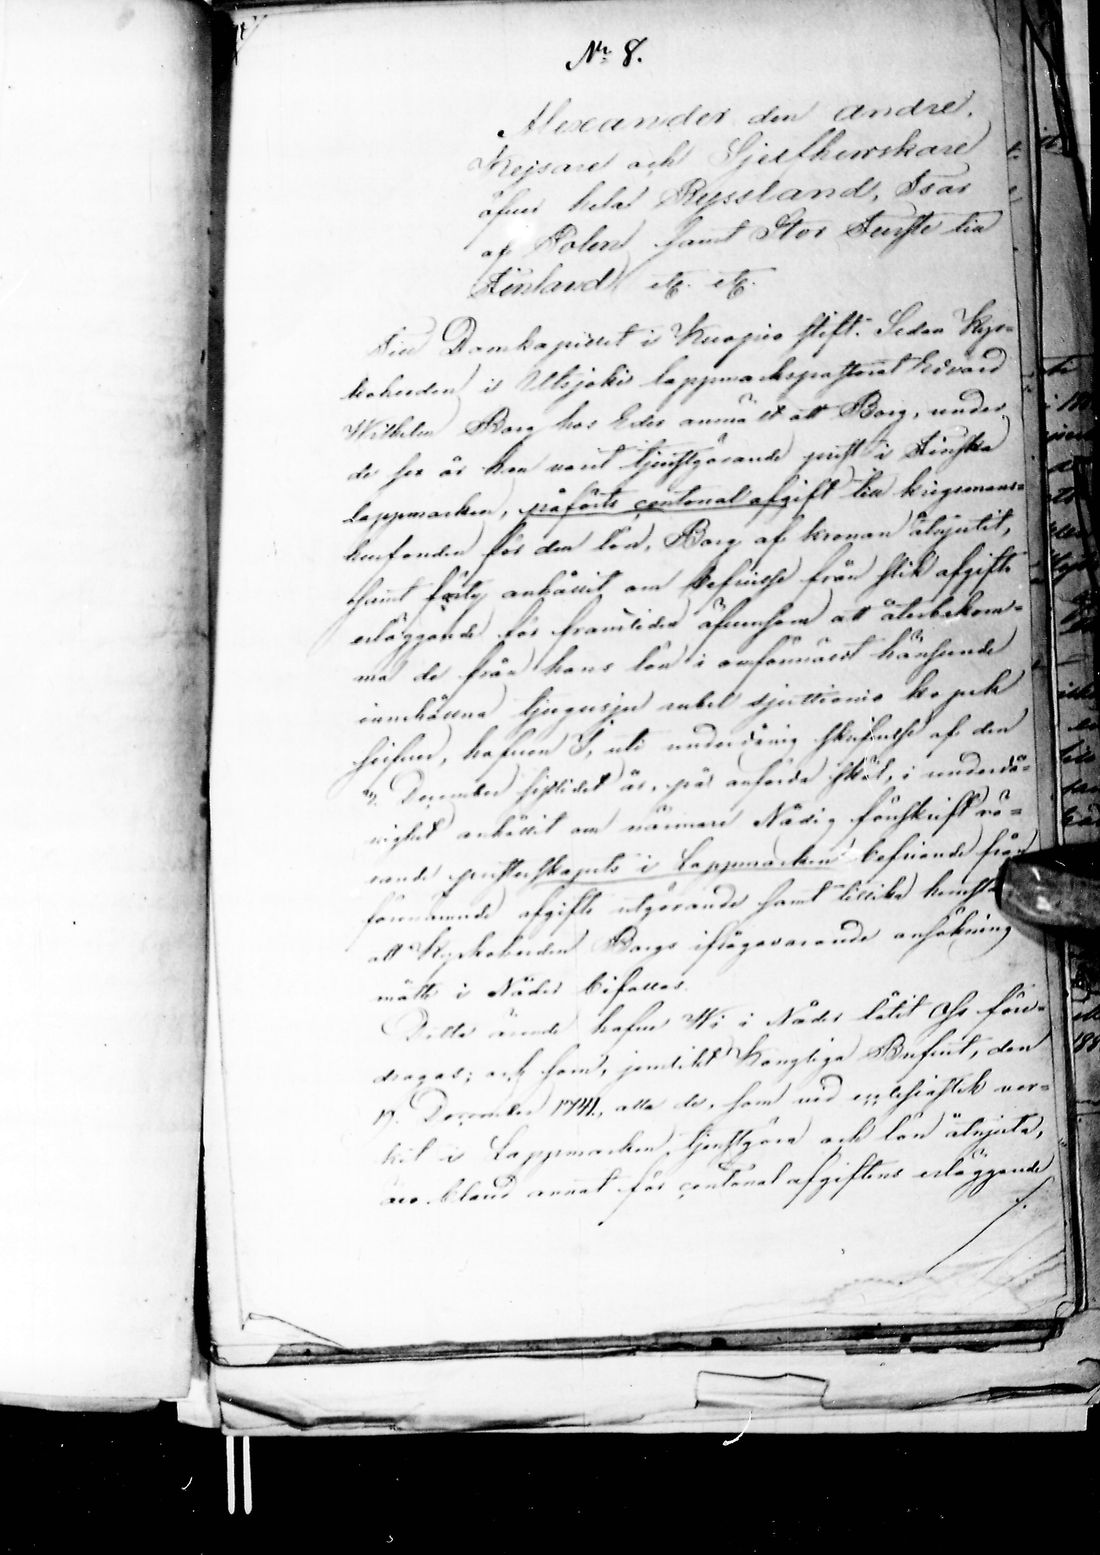 No 8.
Alexander den andre,
Kejsare och Sjelfherrskare
öfver hela Ryssland, Tsar
af Polen samt Stor Furste till
Finland etc. etc.
Till Domkapitlet i Kuopio stift. Sedan Kyr-
koherden i Utsjoki lappmarkspastorat Edvard
Wilhelm Borg hos Eder anmält att Borg, under
de sex år han varit tjenstgörande prest i Finska
Lappmarken, påförts centonal afgift till krigsmans-
husfonden för den lön, Borg af kronan åtnjutit,
samt anhållit om befrielse från slik afgifts
erläggande för framtiden äfvensom att återbekom-
ma de från hans lön i omförmäldt hänseende
innehållna tjugusju rubel sjuttionio kopek
silfver, hafven I, uti underdånig skrifvelse af den
December sistlidet år, på anförda skäl, i underdå-
nighet anhållit om närmare Nådig föreskrift rö-
rande presterskapets i Lappmarken befriande från
förenämnde afgifts utgörande samt tillika
att Kyrkoherden Borgs ifrågavarande ansökning
måtte i Nåder bifallas.
Detta ärende hafve Wi i Nåder låtit Oss före-
dragas; och som, jemlikt Kongliga Brefvet, den
17. December 1741, alla de, som vid ecclesiastik ver-
ket i Lappmarken tjenstgöra och lön åtnjuta,
äro bland annat för centonal afgiftens erläggande